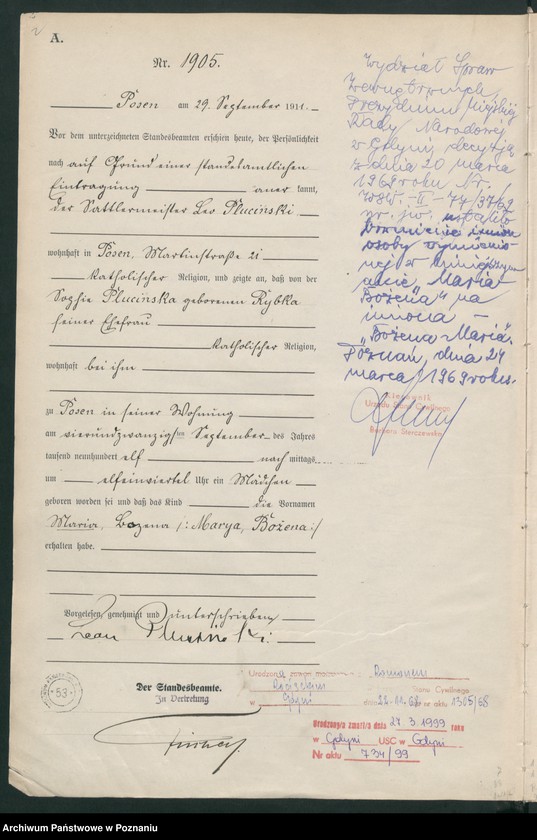 A.
Nr. 1905.
Posen am 29. September 1911.
Vor dem unterzeichneten Standesbeamten erschien heute, der Persönlichkeit
nach auf Grund einer standesamtlichen
Eintragung anerkannt,
der Sattlermeister Leo Pluciński
wohnhaft in Posen, Martinstraße 21
katholischer Religion, und zeigte an, daß von der
Sophie Plucińska geborenen Rybka
seiner Ehefrau
katholischer Religion,
wohnhaft bei ihm
zu Posen in seiner Wohnung
am vierundzwanzigsten September des Jahres
tausend neunhundert elf nachmittags
um elfeinviertel Uhr ein Mädchen
geboren worden sei und daß das Kind die Vornamen
Maria, Bozena /: Marya, Bożena :/
erhalten habe.
Vorgelesen, genehmigt und unterschrieben
Leon Pluciński
Der Standesbeamte.
In Vertretung
53
Wydział Spraw
Wewnętrznych
Prezydium Miejskiej
Rady Narodowej
w Gdyni decyzją
z dnia 20 marca
1969 roku Nr.
WSW-II-74/37/69
nr. jw. ustaliło
brzmienie imion
osoby wymienio
nej w niniejszym
akcie "Maria
Bożena" na
imiona -
"Bożena Maria".
Poznań, dnia 24
marca 1969 roku.
Kierownik
Urzędu Stanu Cywilnego
Barbara
Urodzona zawarł małżeństwo z Romanem
Stanu Cywilnego
w Gdyni dnia 26.11.68 nr aktu 1305/68
Urodzony/a zmarł/a dnia 27.3.1999 roku
w Gdyni USC w Gdyni
Nr aktu 734/99
Archiwum Państwowe w Poznaniu